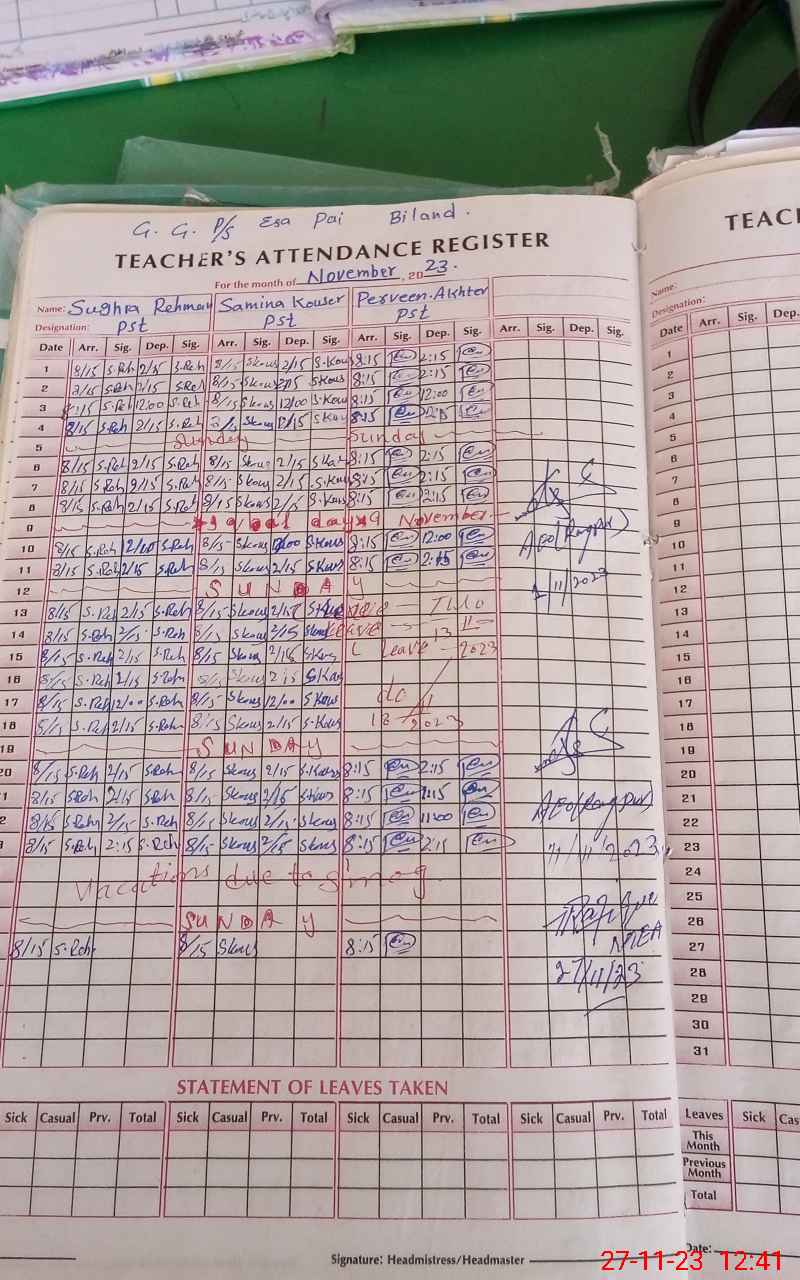 G. G. P/S Esa Pai Biland.
TEACHER'S ATTENDANCE REGISTER
For the month of November, 2023.
Name: Sughra Rehman Samina Kouser Perveen.Akhter
Designation: Pst Pst Pst
Date Arr. Sig. Dep. Sig. Arr. Sig. Dep. Sig. Arr. Sig. Dep. Sig. Arr. Sig. Dep. Sig.
1 8/15 S.Reh 2/15 S.Reh 8/15 Skous 2/15 S.Kous 8:15 2:15
2 S.Reh 2/15 S.Reh 8/15 Skous 2/15 S.Kous 8:15 2:15
3 8/15 S.Reh 12:00 S.Reh 8/15 Skous 12/00 S.Kous 8:15 12:00
4 8/15 S.Reh 2/15 S.Reh Skous S.Kous 8:15
5 Sunday Sunday
6 8/15 S.Reh 2/15 S.Reh 8/15 Skous 2/15 S.Kous 8:15 2:15
7 8/15 S.Reh 2/15 S.Reh 8/15 Skous 2/15 S.Kous 8:15 2:15
8 8/15 S.Reh 2/15 S.Reh 8/15 Skous 2/15 S.Kous 8:15 2:15
9 Iqbal day 9 November
10 8/15 S.Reh 12/00 S.Reh 8/15 Skous 12/00 S.Kous 8:15 12:00
11 8/15 S.Reh 2/15 S.Reh 8/15 Skous 2/15 S.Kous 8:15 2:15
12 SUNDAY
13 8/15 S.Reh 2/15 S.Reh 8/15 Skous 2/15 S.Kous
14 8/15 S.Reh 2/15 S.Reh 8/15 Skous 2/15 Skous Leave 13 11
15 8/15 S.Reh 2/15 S.Reh 8/15 Skous 2/15 S.Kous Leave 2023
16 8/15 S.Reh 2/15 S.Reh 8/15 Skous 2:15 S.Kous
17 8/15 S.Reh 12/00 S.Reh 8/15 Skous 12/00 S.Kous do
18 8/15 S.Reh 2/15 S.Reh 8/15 Skous 2/15 S.Kous 18 11 2023
19 SUNDAY
20 8/15 S.Reh 2/15 S.Reh 8/15 Skous 2/15 S.Kous 8:15 2:15
1 8/15 S.Reh 2/15 S.Reh 8/15 Skous 2/15 S.Kous 8:15
2 8/15 S.Reh 2/15 S.Reh 8/15 Skous 2/15 Skous 8:15
8/15 S.Reh 2:15 S.Reh 8/15 Skous 2/15 Skous 8:15 2:15
Vacations due to smog.
SUNDAY
8/15 S.Reh 8/15 Skous 8:15
AEO(Rangpur)
11/2023
AEO(Rangpur)
11/2023
MEA
27/11/23
STATEMENT OF LEAVES TAKEN
Sick Casual Prv. Total Sick Casual Prv. Total Sick Casual Prv. Total Sick Casual Prv. Total
Signature: Headmistress/Headmaster
TEACH
Name:
Designation:
Date Arr. Sig. Dep.
1
2
3
4
5
6
7
8
9
10
11
12
13
14
15
16
17
18
19
20
21
22
23
24
25
26
27
28
29
30
31
Leaves Sick Cas
This Month
Previous Month
Total
Date:
27-11-23 12:41